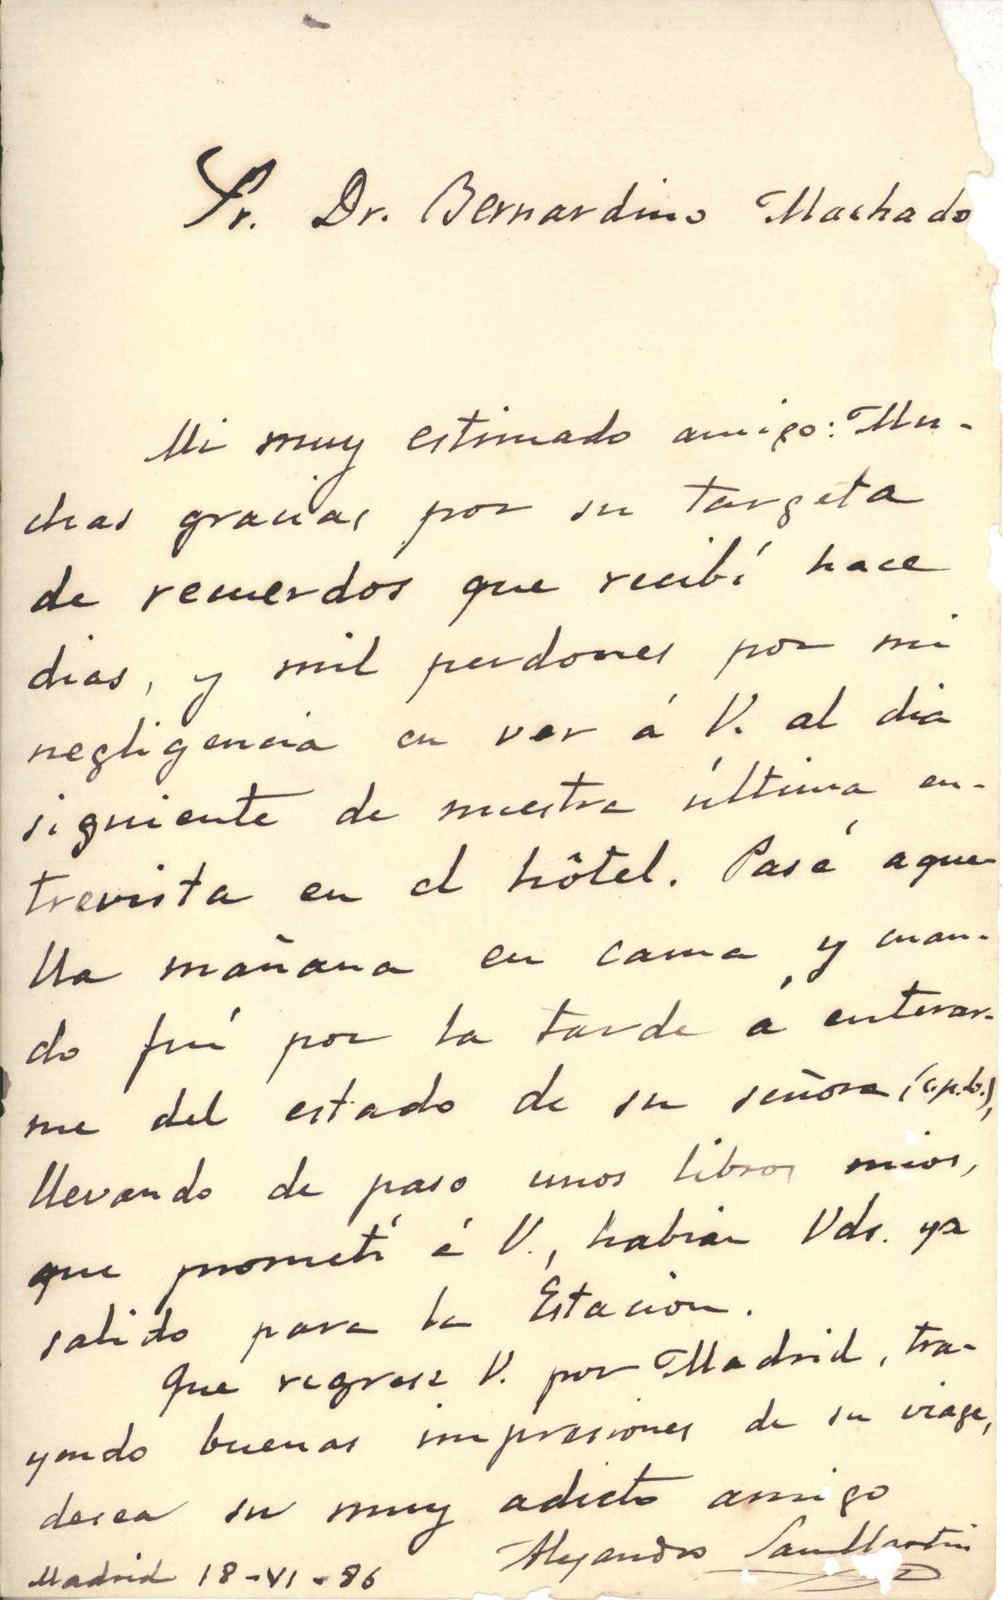 Sr. Dr. Bernardino Machado
Mi muy estimado amigo: Mu-
chas gracias por su targeta
de recuerdos que recibí hace
dias, y mil perdones por mi
negligencia en ver á V. al dia
siguiente de nuestra última en-
trevista en el hôtel. Pasé aque
lla mañana en cama y cuan-
do fuí por la tarde á enterar-
me del estado de su señora (c.p.b.),
llevando de paso unos libros mios,
que prometí á V., habian Vds. ya
salido para la Estacion.
Que regrese V. por Madrid, tra-
yendo buenas impresiones de su viage,
desea su muy adicto amigo
Alejandro San Martin
Madrid 18-VI-86